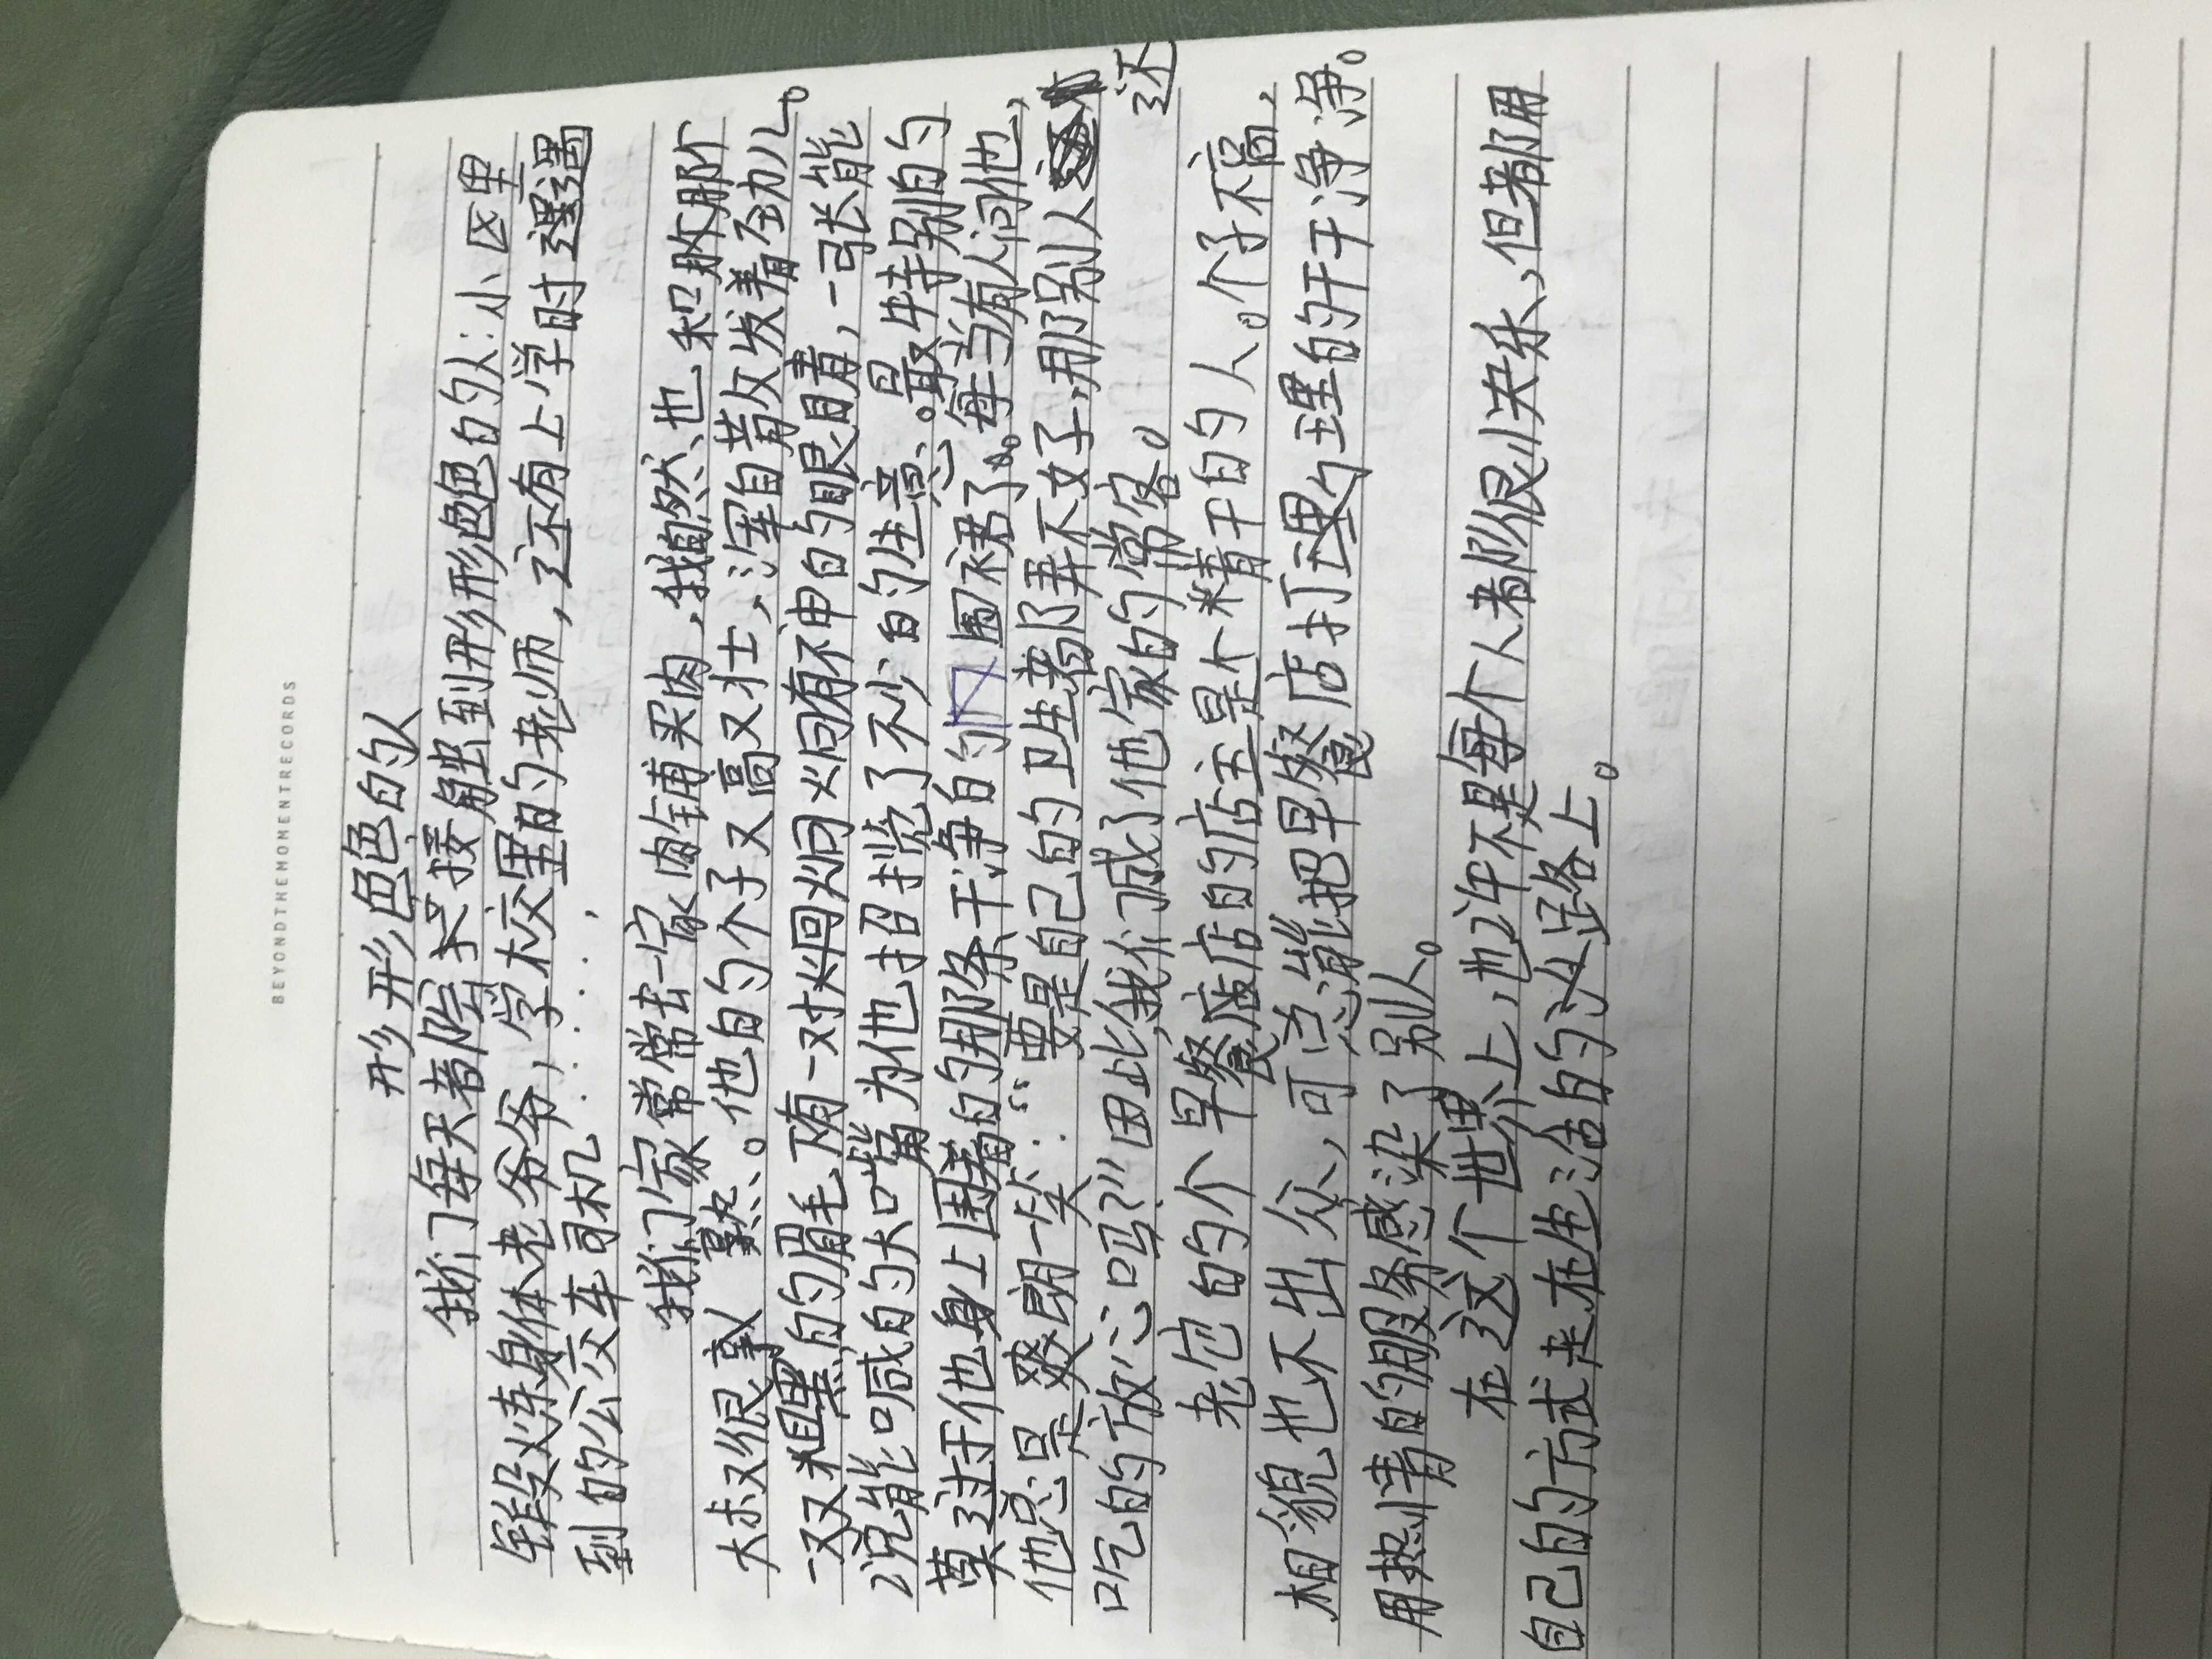 BEYONDTHEMOMENTRECORDS
形形色色的人
我们每天都会接触到形形色色的人:小区里
锻炼身体老爷爷,学校里的老师,还有上学时遇
到的公交车司机......,
我们家常常去一家肉铺买肉,我自然也和那
大叔很熟。他的个子又高又壮,浑身散发着劲儿。
一双粗黑的眉毛下有一对炯炯有神的眼睛,一张能
说能喊的大嘴为他招揽了不少的生意。最特别的
莫过于他身上围着的那条干净的围裙了。每当有人问他,
他总是爽朗一笑:“要是自己的卫生都弄不好,那别人还
吃的放心吗?”因此我们成了他家的常客。
老包的个早餐店的店主是个精干的人。个子不高,
相貌也不出众,可总能把早餐店打理的干干净净。
用热情的服务感染了别人。
在这个世界上,也许不是每个人都很快乐,但都用
自己的方式走在生活的路上。